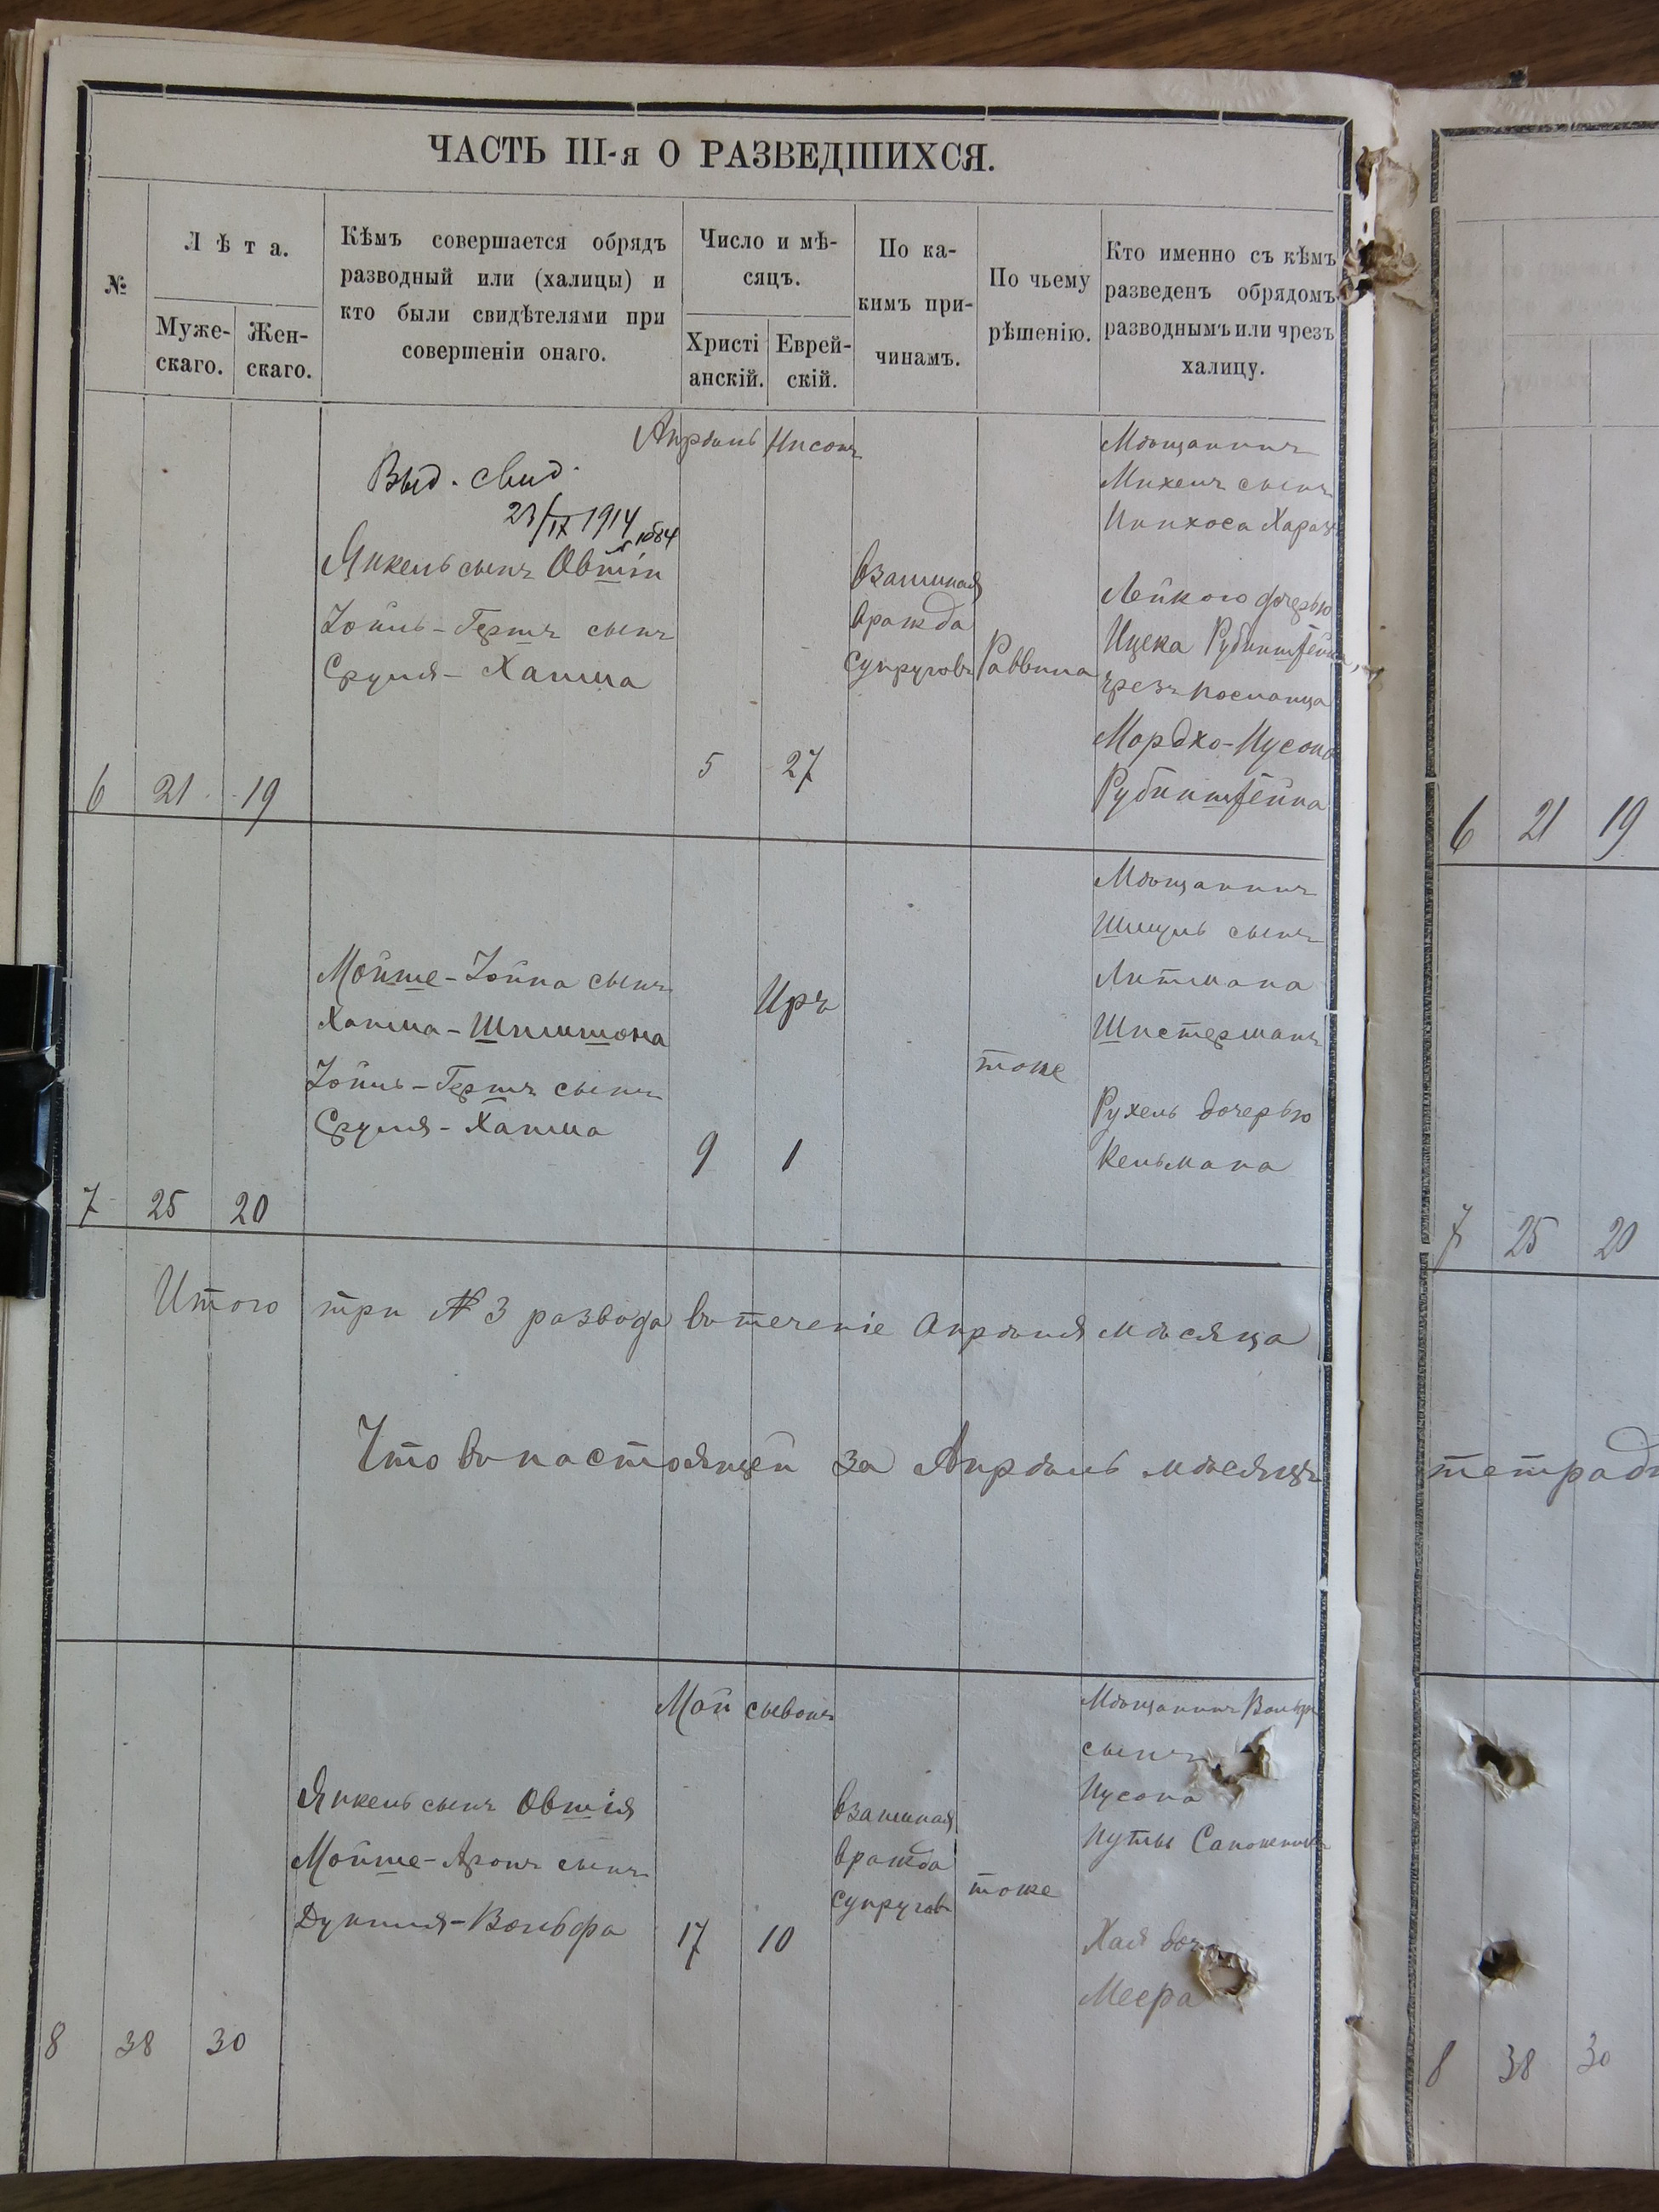 ЧАСТЬ III-я О РАЗВЕДШИХСЯ.
№
Лѣта.
Муже-
скаго.
Жен-
скаго.
Кѣмъ совершается обрядъ
разводный или (халицы) и
кто были свидѣтелями при
совершеніи онаго.
Число и мѣ-
сяцъ.
Христі
анскій.
Еврей-
скій.
По ка-
кимъ при-
чинамъ.
По чьему
рѣшенію.
Кто именно съ кѣмъ
разведенъ обрядомъ
разводнымъ или чрезъ
халицу.
Апрѣль Нисонъ
Выд. свид.
23/IX 1914
Янкель сынъ Овшія
Іойль-Гершъ сынъ
Сруля-Хаима
5 27
взаимная
вражда
супруговъ
Раввина
Мѣщанинъ
Михель сынъ
Пинхоса Харазъ
Лейкою дочерью
Ицека Рубинштейна,
чрезъ посланца
Мордко-Нусона
Рубинштейна
6 21 19
6 21 19
Мойше-Іойна сынъ
Хаима-Шлимона
Іойль-Гершъ сынъ
Сруля-Хаима
Иръ
9 1
тоже
Мѣщанинъ
Шмуль сынъ
Литмана
Шистерманъ
Рухель дочерью
Кельмана
7 25 20
7 25 20
Итого три № 3 развода въ теченіе Апрѣля мѣсяца
Что въ настоящей за Апрѣль мѣсяцъ
тетради
Май Сывонъ
Янкель сынъ Овшія
Мойше-Аронъ сынъ
Дувида-Вольфа
17 10
взаимная
вражда
супруговъ
тоже
Мѣщанинъ Вольфъ
сынъ
Нусона
Нуты
Хая
Меера
8 38 30
8 38 30